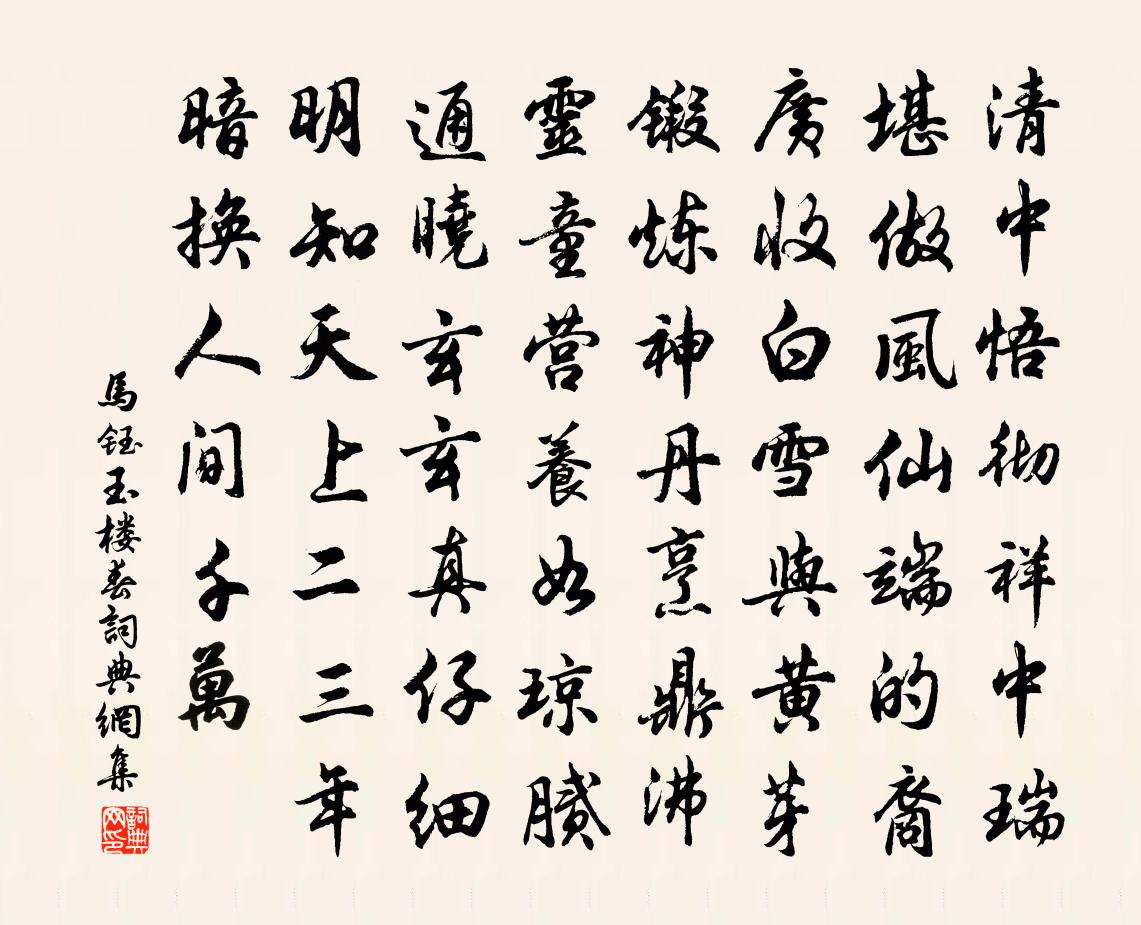 清中悟彻祥中瑞
堪做風仙端的裔
廣收白雪與黃芽
鍛炼神丹烹鼎沸
靈童营養如琼腻
通曉玄玄真仔细
明知天上二三年
暗換人间千萬
馬钰玉楼春詞典網集
詞典网印